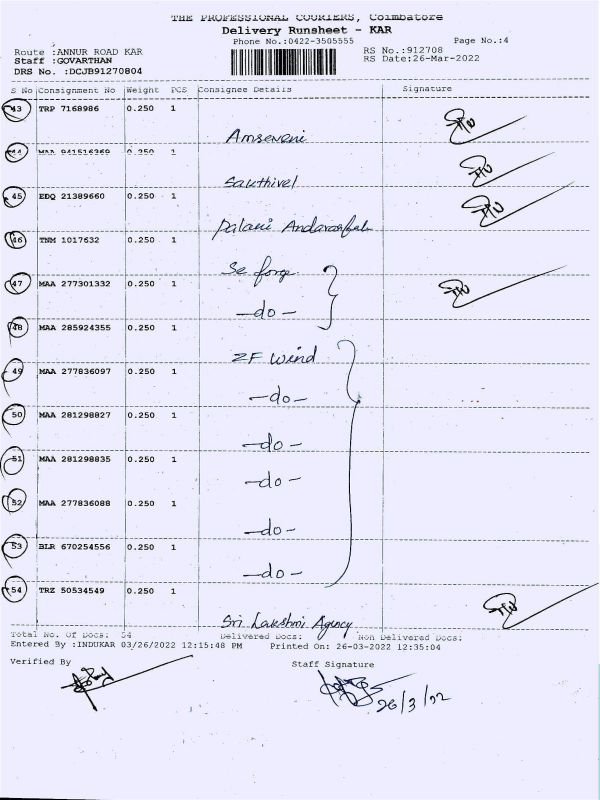 THE PROFESSIONAL COURIERS, Coimbatore
Delivery Runsheet - KAR
Phone No.:0422-3505555 Page No.:4
Route :ANNUR ROAD KAR RS No.:912708
Staff :GOVARTHAN RS Date:26-Mar-2022
DRS No. :DCJB91270804
S No Consignment No Weight PCS Consignee Details Signature
43 TRP 7168986 0.250 1
Amseveni
44 MAA 941516369 0.250 1
Sakthivel
45 EDQ 21389660 0.250 1
Palani
46 TNM 1017632 0.250 1
Se forge
47 MAA 277301332 0.250 1
-do-
48 MAA 285924355 0.250 1
ZF Wind
49 MAA 277836097 0.250 1
-do-
50 MAA 281298827 0.250 1
-do-
51 MAA 281298835 0.250 1
-do-
52 MAA 277836088 0.250 1
-do-
53 BLR 670254556 0.250 1
-do-
54 TRZ 50534549 0.250 1
Sri Lakshmi Agency
Total No. Of Docs: 54 Delivered Docs: Non Delivered Docs:
Entered By :INDUKAR 03/26/2022 12:15:48 PM Printed On: 26-03-2022 12:35:04
Verified By Staff Signature
26/3/22